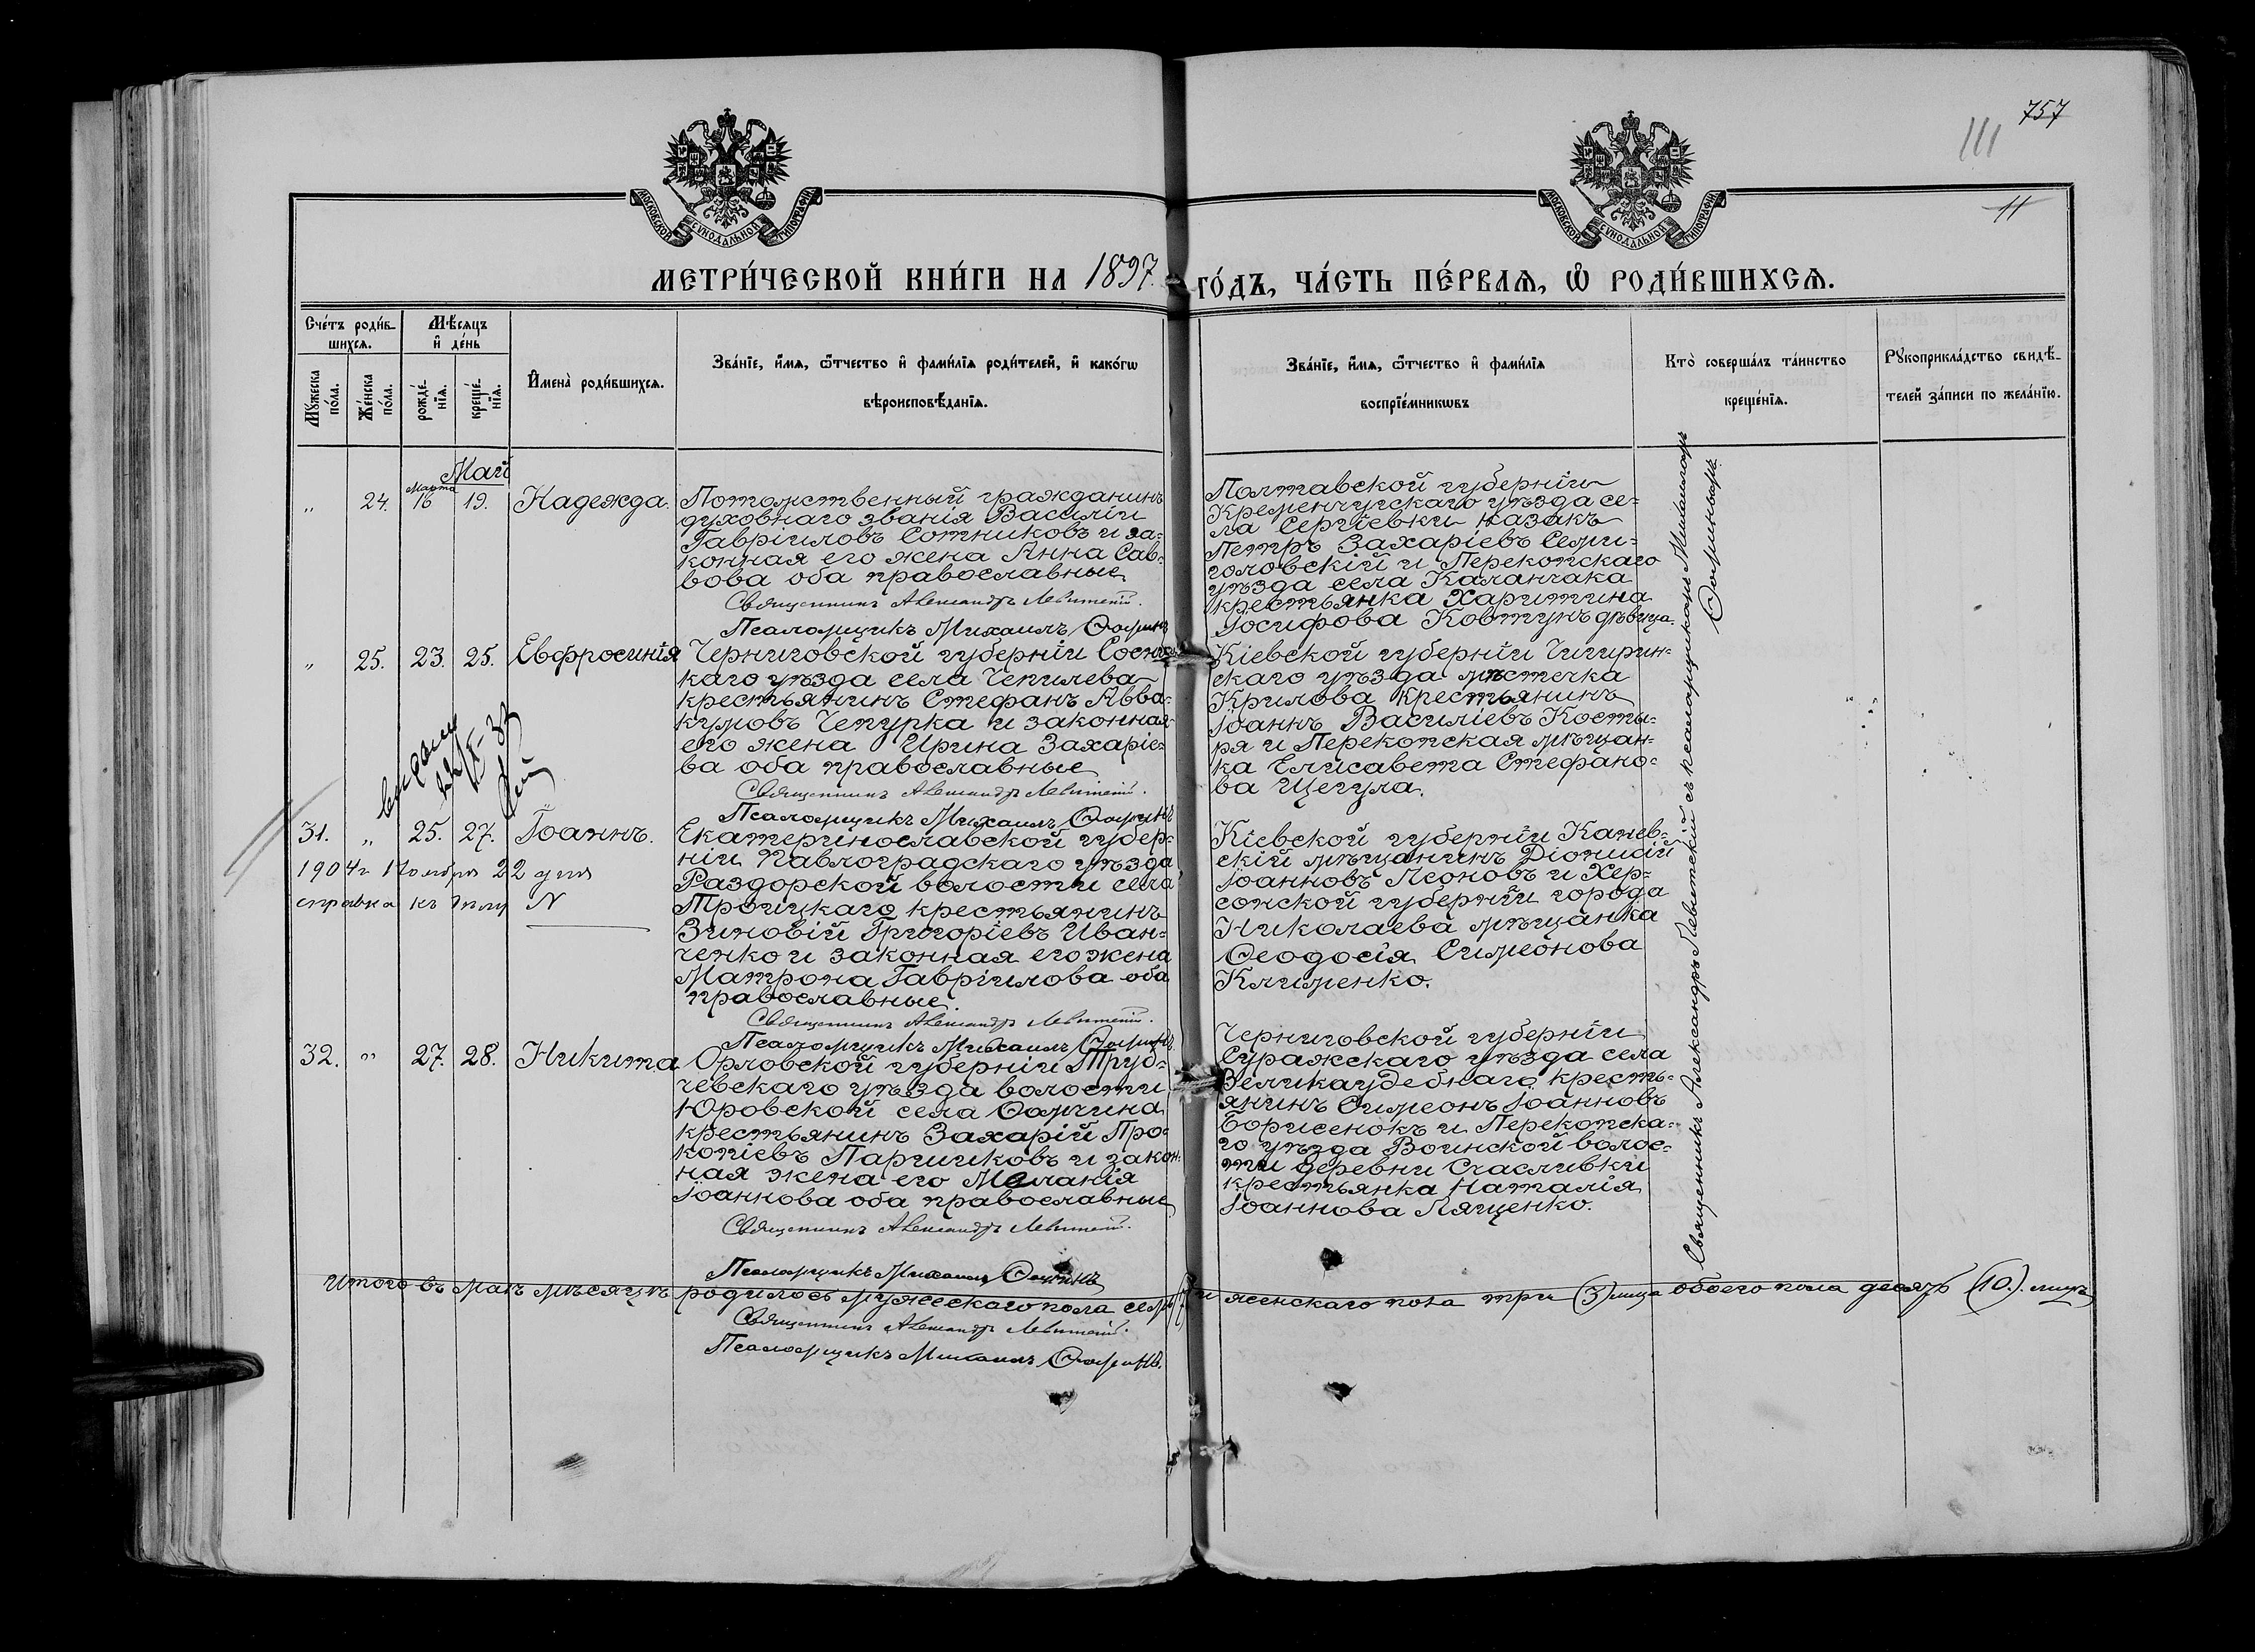 757
111
11
МОСКОВСКОЙ СѴНОДАЛЬНОЙ ТИПОГРАФІИ
МОСКОВСКОЙ СѴНОДАЛЬНОЙ ТИПОГРАФІИ
МЕТРИ́ЧЕСКОЙ КНИ́ГИ НА 1897 ГО́ДЪ, ЧА́СТЬ ПЕ́РВАЯ, Ѽ РОДИ́ВШИХСЯ.
Сче́тъ роди́в-
шихся.
Мѣ́сяцъ
и҆ де́нь
Мꙋ́жеска
по́ла.
Же́нска
по́ла.
рожде́-
нїя.
креще́-
нїя.
И҆мена̀ роди́вшихся.
Зва́нїе, и҆́мя, ѻ҆́тчество и҆ фами́лїя роди́телей, и҆ како́гѡ
вѣроисповѣ́данїя.
Зва́нїе, и҆́мя, ѻ҆́тчество и҆ фами́лїя
воспрїе́мникѡвъ
Кто̀ соверша́лъ та́инство
креще́нїя.
Рꙋкоприкла́дство свидѣ́-
телей за́писи по жела́нїю.
Май
Марта
„ 24. 16 19. Надежда.
Потомственный гражданинъ
духовнаго званія Василій
Гавріиловъ Сотниковъ и за-
конная его жена Анна Сав-
вова оба православные
Священникъ Александръ Левитскій.
Псаломщикъ Михаилъ Ѳоминъ
Полтавской губерніи
Кременчугскаго уѣзда се-
ла Сергіевки казакъ
Петръ Захаріевъ Семи-
головскій и Перекопскаго
уѣзда села Каланчака
крестьянка Харитина
Іосифова Ковтунъ дѣвица.
„ 25. 23. 25. Евфросинія
Черниговской губерніи Сосниц-
каго уѣзда села Чепилева
крестьянинъ Стефанъ Авва-
кумовъ Чепурка и законная
его жена Ирина Захаріе-
ва оба православные
Священникъ Александръ Левитскій.
Псаломщикъ Михаилъ Ѳоминъ
Кіевской губерніи Чигирин-
скаго уѣзда мѣстечка
Крилова крестьянинъ
Іоаннъ Василіевъ Косты-
ря и Перекопская мѣщан-
ка Елисавета Стефано-
ва Щегула.
31. „ 25. 27. Іоаннъ.
1904 г Ноября 22 дня
справка къ дѣлу N
Екатеринославской губер-
ніи Павлоградскаго уѣзда
Раздорской волости села
Троицкаго крестьянинъ
Зиновій Григоріевъ Иван-
ченко и законная его жена
Матрона Гавріилова оба
православные
Священникъ Александръ Левитскій.
Псаломщикъ Михаилъ Ѳоминъ
Кіевской губерніи Канев-
скій мѣщанинъ Діонисій
Іоанновъ Леоновъ и Хер-
сонской губерніи города
Николаева мѣщанка
Ѳеодосія Симеонова
Клименко.
32. „ 27. 28. Никита
Орловской губерніи Труб-
чевскаго уѣзда волости
Юровской села Ѳомчина
крестьянинъ Захарій Про-
копіевъ Паршиковъ и закон-
ная жена его Меланія
Іоаннова оба православные
Священникъ Александръ Левитскій.
Псаломщикъ Михаилъ Ѳоминъ
Черниговской губерніи
Суражскаго уѣзда села
Великаудебнаго кресть-
янинъ Симеонъ Іоанновъ
Борисенокъ и Перекопска-
го уѣзда Воинской волос-
ти деревни Счасливки
крестьянка Наталія
Іоаннова Лященко.
Священникъ Александръ Левитскій съ псаломщикомъ Михаиломъ
Ѳоминымъ
Итого въ маѣ мѣсяцѣ родилось мужескаго пола семь и женскаго пола три (3) лица обоего пола десять (10.) лицъ
Священникъ Александръ Левитскій.
Псаломщикъ Михаилъ Ѳоминъ.